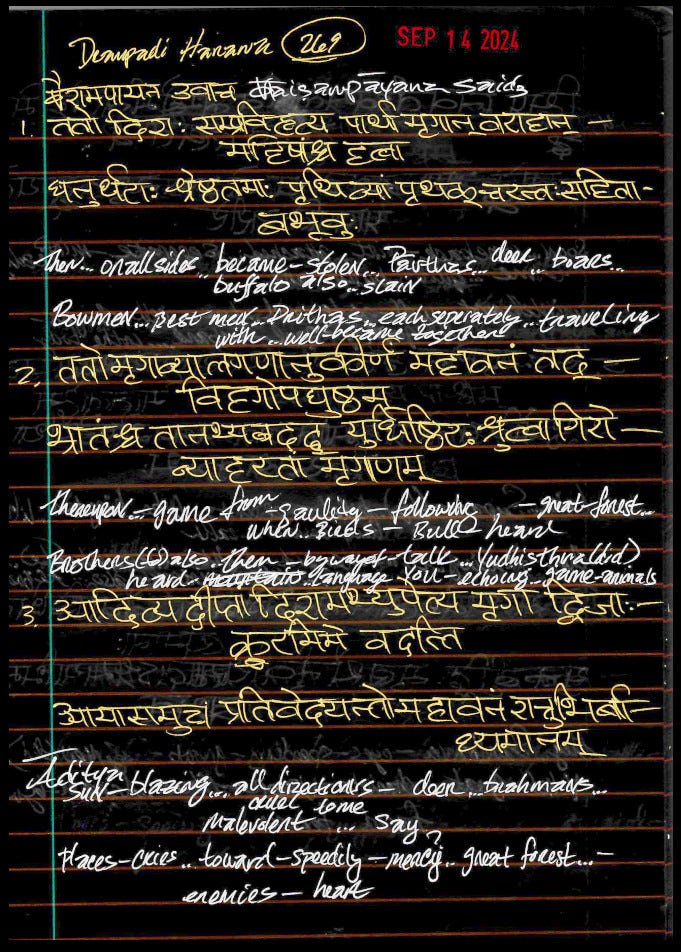 Draupadi Harana 269 SEP 14 2024
वैशमपायन उवाच Vaisampayana said
1. ततो दिशः सम्प्रविहृत्य पार्थ मृगान् वराहान् –
महिषांश्च हत्वा
धनुर्धराः श्रेष्ठतमाः पृथिव्यां पृथक् चरन्तः सहिता-
बभूवुः
Then... on all sides... became-stolen... Parthas... deer... boars...
buffalo also... slain
Bowmen... Best men... Prithas... each seperately... traveling
with... well-became together
2. ततो मृगव्यालगणानुकीर्णं महावनं तद् –
विहगोपघुष्टम्
भ्रातंश्च तानभ्यवदद् युधिष्ठिरः श्रुत्वा गिरो –
व्याहरतां मृगाणाम्
Thereupon – game from – following – great-forest...
when... Birds – Bull – heard
Brothers (6) also... Them – by way of – talk... Yudhisthra
heard – language You – echoing... game-animals
3. आदित्यदीप्तां दिशमभ्युपेत्य मृगा द्विजाः –
क्रूरमिमे वदन्ति
आयासमुग्रं प्रतिवेदयन्तो महावनं शत्रुभिर्बा –
ध्यमानम्
Aditya
Sun – blazing... all directions – deer... brahmans...
over come
Malevolent ... say?
Places-cries... toward – speedily – mercy... great forest... –
enemies – heart